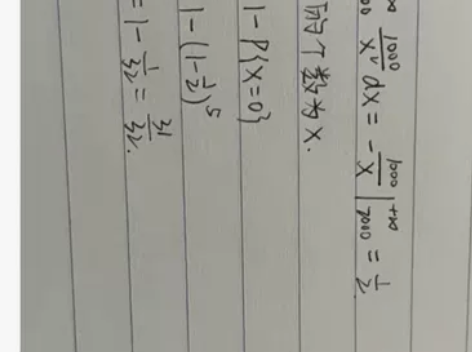 ∞ 1000/x² dx = -1000/x |_{2000}^{+∞} = 1/2.
的个数为X.
1-P{X=0}
1-(1-1/2)^5
=1-1/32=31/32.